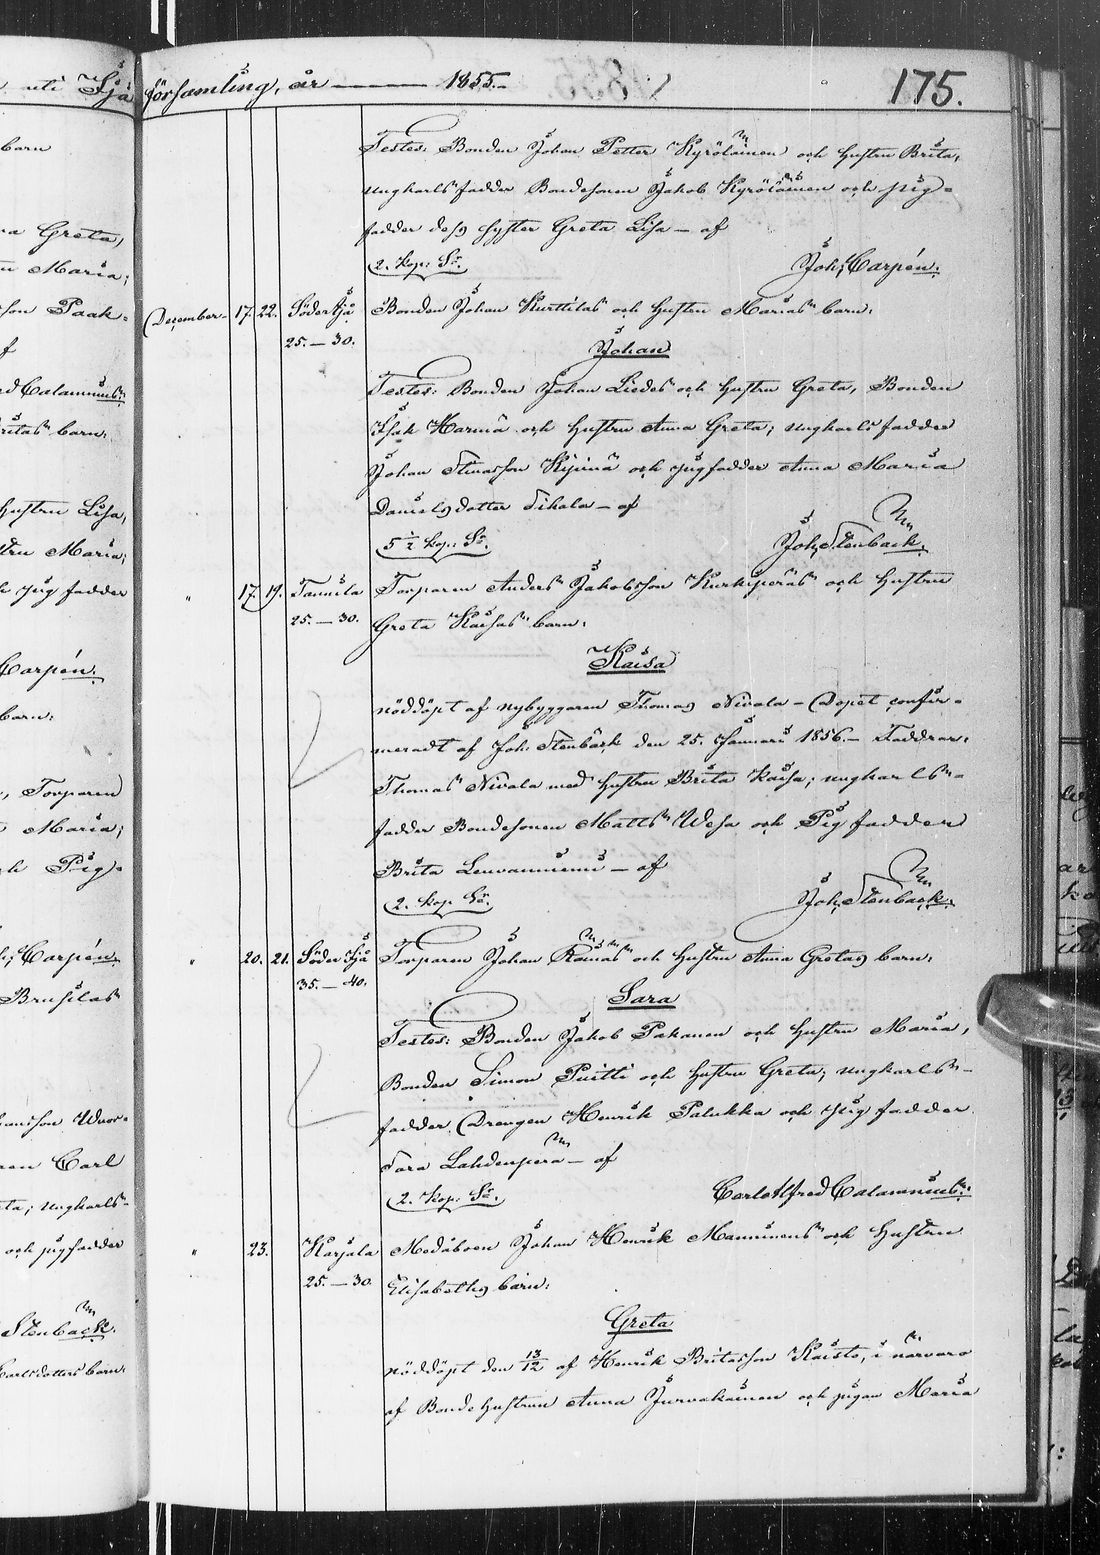 uti Ijå församling, år ——— 1855.
175.
Testes: Bonden Johan Petter Kyröläinen och hustru Brita,
ungkarlsfadder Bondesonen Jakob Kyröläinen och pig-
fadder dess syster Greta Lisa — af
2. kop: Sr. Joh: Carpén.
December 17. 22. Söder Ijå Bonden Johan Kurttilas och hustru Marias barn:
25.—30. Johan
Testes: Bonden Johan Liedes och hustru Greta, Bonden
Isak Harmä och hustru Anna Greta; ungkarlsfadder
Johan Thomasson och pigfadder Anna Maria
Danielsdotter Tihala — af
5 1/2 kop: Sr. Joh. Stenbäck.
" 17. 19. Tannila Torparen Anders Jakobsson Kurkiperäs och hustru
25.—30. Greta Kaisas barn:
Kaisa
nöddöpt af nybyggaren Thomas Nivala — Dopet confir-
meradt af Joh. Stenbäck den 25. Januari 1856.— Faddrar:
Thomas Nivala med hustru Brita Kaisa; ungkarls-
fadder Bondesonen Matts Wesa och Pigfadder
Brita Leuvanniemi — af
2. kop Sr. Joh. Stenbäck.
" 20. 21. Söder Ijå Torparen Johan och hustru Anna Gretas barn:
35.—40. Sara
Testes: Bonden Jakob Pakanen och hustru Maria,
Bonden Simon Puitti och hustru Greta; ungkarls-
fadder Drengen Henrik Palukka och pigfadder
Sara Lahdenperä — af
2. kop: Sr. Carl Alfred Calamnius.
" 23. Karjala Medåboen Johan Henrik Manninens och hustru
25.—30 Elisabeths barn:
Greta
nöddöpt den 13/12 af Henrik Britasson Kaisto, i närvaro
af Bondehustrun Anna Jurvakainen och pigan Maria